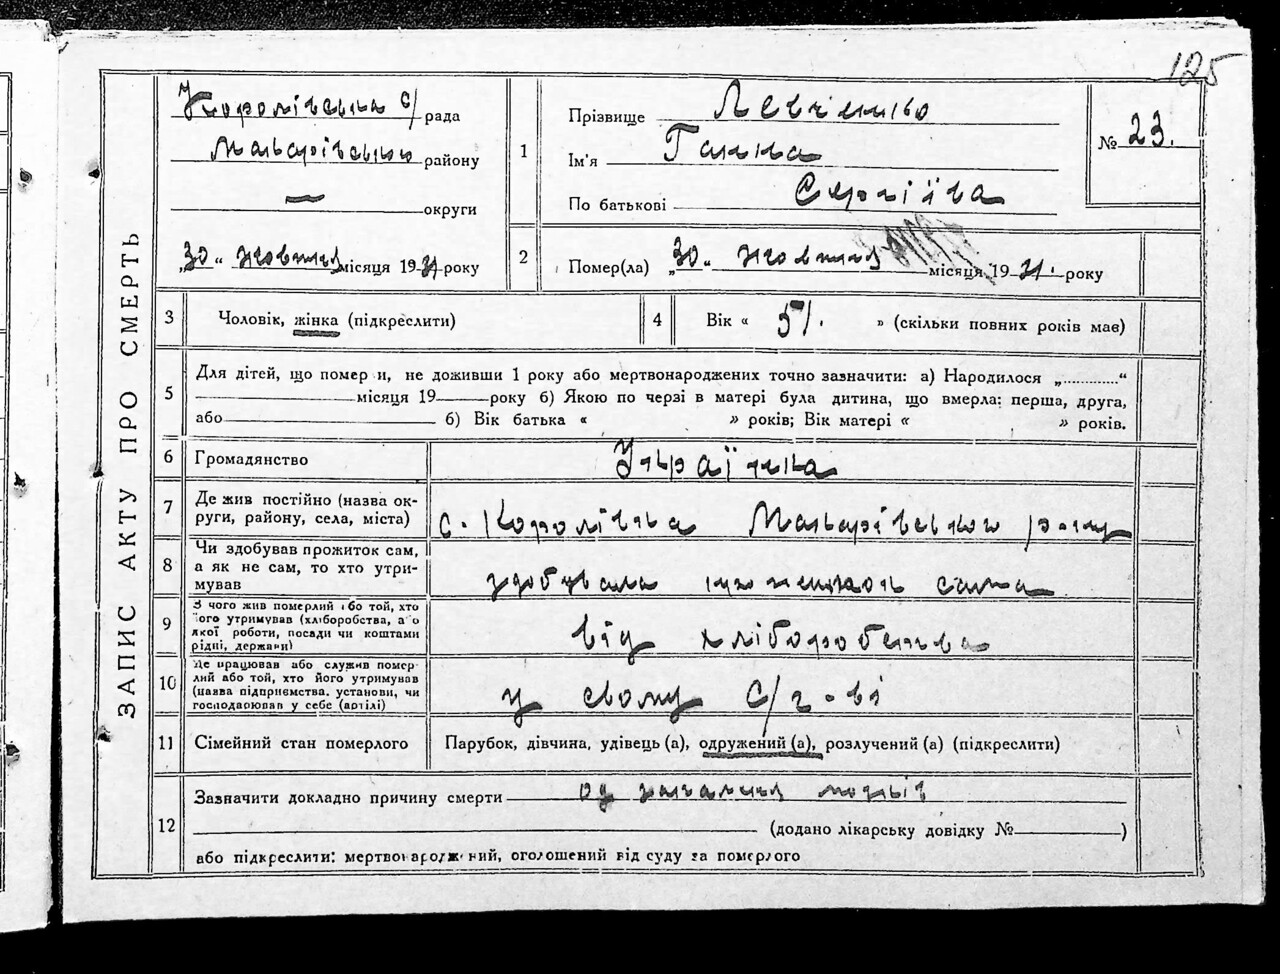 125
Королівська с/рада
Макарівського району
— округи
„30“ жовтня місяця 1931 року
ЗАПИС АКТУ ПРО СМЕРТЬ
1
Прізвище Левченко
Ім'я Ганна
По батькові Сергіїва
№ 23.
2
Помер(ла) „30“ жовтня місяця 1931. року
3 Чоловік, жінка (підкреслити)
4 Вік « 51. » (скільки повних років має)
5 Для дітей, що померли, не доживши 1 року або мертвонароджених точно зазначити: а) Народилося „............“
місяця 19 року б) Якою по черзі в матері була дитина, що вмерла: перша, друга,
або б) Вік батька « » років; Вік матері « » років.
6 Громадянство Українка
7 Де жив постійно (назва ок-
руги, району, села, міста) с. Королівка Макарівського р-ну
8 Чи здобував прожиток сам,
а як не сам, то хто утри-
мував здобувала прожиток сама
9 З чого жив померлий або той, хто
його утримував (хліборобства, або
якої роботи, посади чи коштами
рідні, держави) від хліборобства
10 Де працював або служив помер-
лий або той, хто його утримував
(назва підприємства. установи, чи
господарював у себе (артілі) у свому с/г-ві
11 Сімейний стан померлого Парубок, дівчина, удівець (а), одружений (а), розлучений (а) (підкреслити)
12 Зазначити докладно причину смерти од запалення
(додано лікарську довідку № )
або підкреслити: мертвонароджений, оголошений від суду за померлого